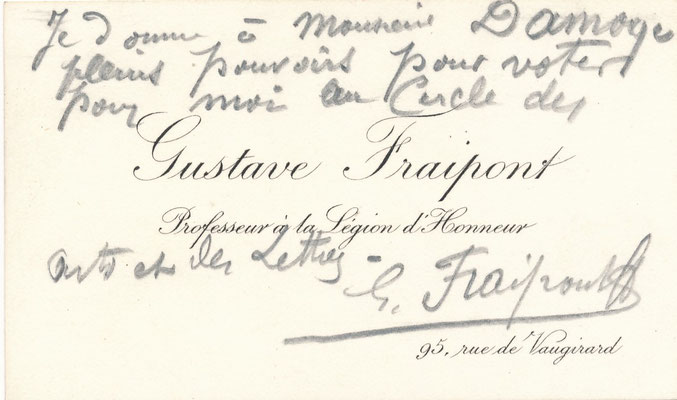 Je donne à Monsieur Damoye
pleins pouvoirs pour voter
pour moi au Cercle des
Gustave Fraipont
Professeur à la Légion d'Honneur
Arts et des Lettres -
G. Fraipont
95, rue de Vaugirard